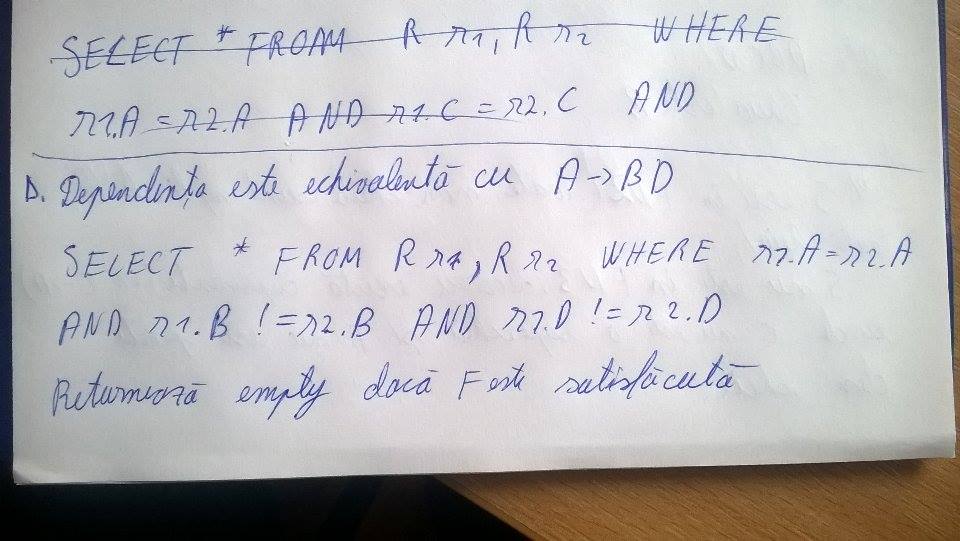 SELECT * FROM R r1, R r2 WHERE
r1.A = r2.A AND r1.C = r2.C AND
D. Dependența este echivalentă cu A→BD
SELECT * FROM R r1, R r2 WHERE r1.A = r2.A
AND r1.B != r2.B AND r1.D != r2.D
Returnează empty dacă F este satisfăcută